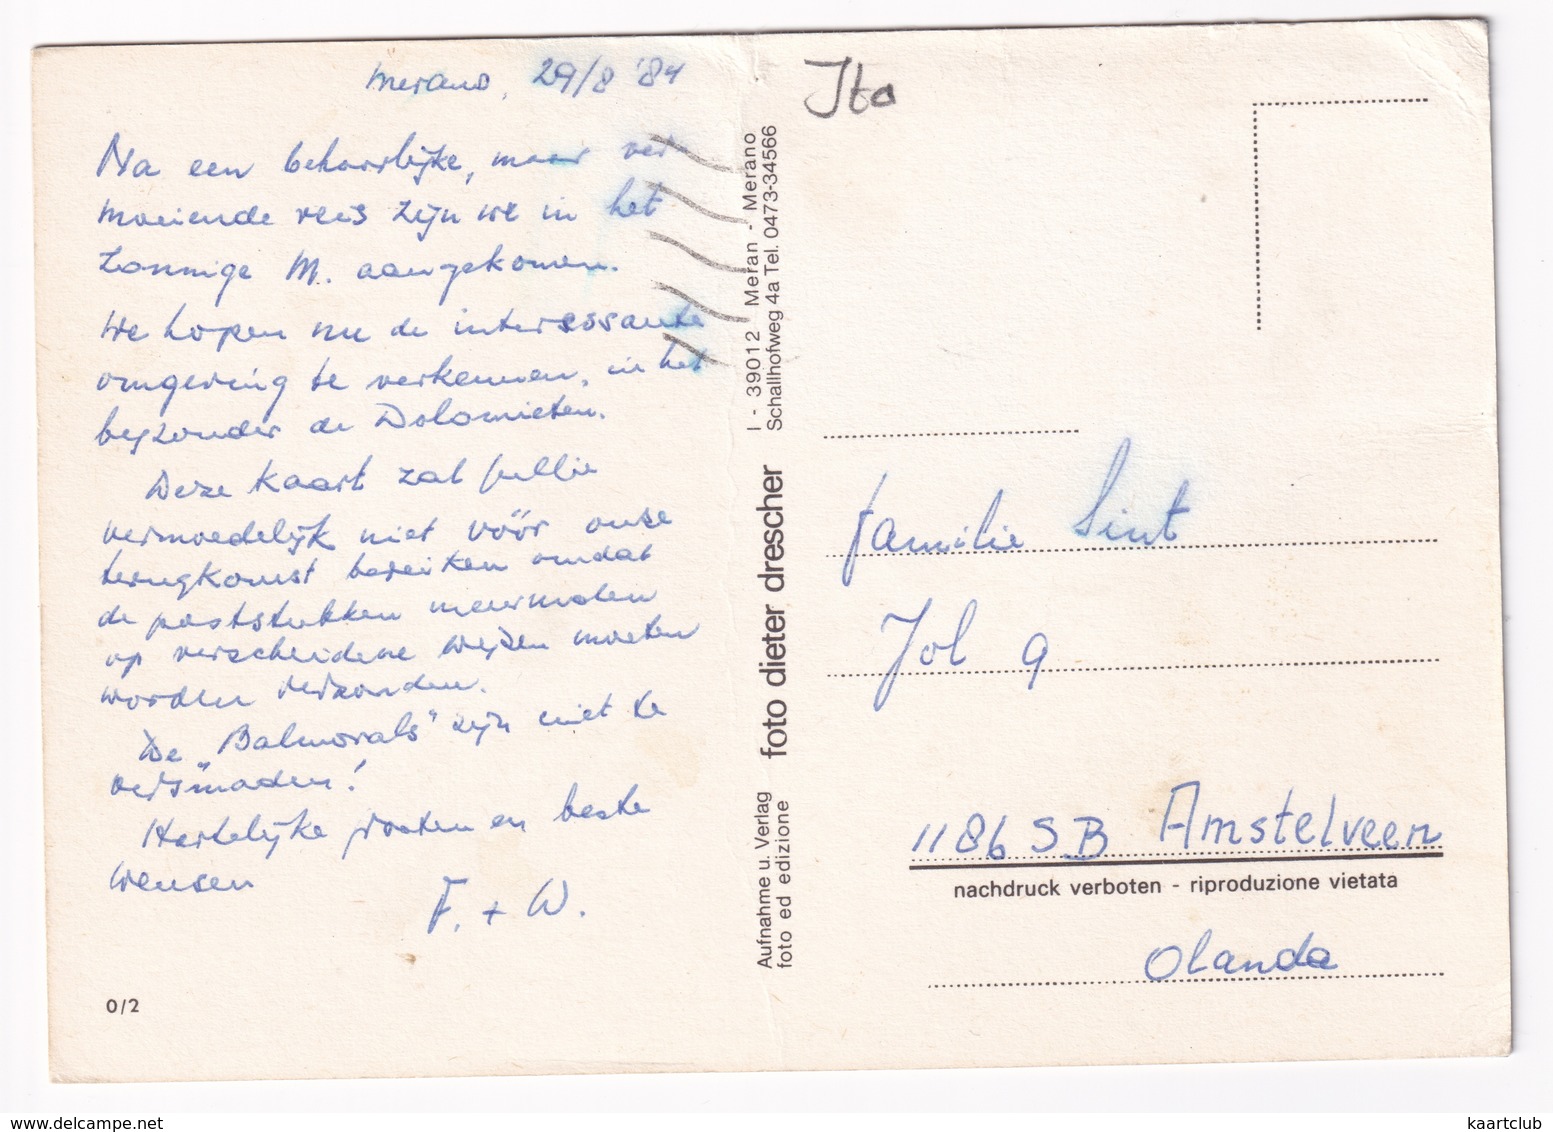 Merano, 29/8 '84
Na een behoorlijke, maar ver
moeiende reis zijn we in het
zonnige M. aangekomen.
We hopen nu de interessante
omgeving te verkennen, in het
bijzonder de Dolomieten.
Deze kaart zal jullie
vermoedelijk niet vóór onze
terugkomst bereiken omdat
de poststukken meermalen
op verscheidene wijzen moeten
worden verzonden.
De „Balmorals" zijn niet te
versmaden!
Hartelijke groeten en beste
wensen
F. + W.
0/2
Aufnahme u. Verlag
foto ed edizione
foto dieter drescher
I - 39012 Meran - Merano
Schallhofweg 4a Tel. 0473-34566
Ita
familie Sint
Jol 9
1186 SB Amstelveen
nachdruck verboten - riproduzione vietata
Olanda
kaartclub